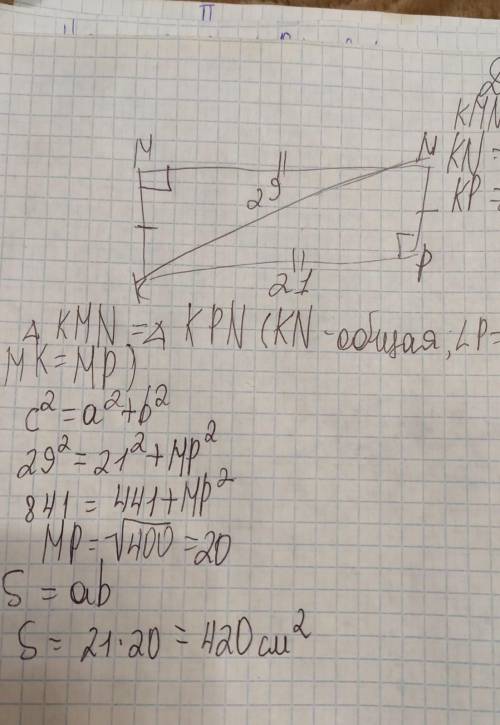 KMN
M N KN =
29 KP =
K P
21
△ KMN = △ KPN (KN - общая, ∠P =
MK = MP)
c² = a² + b²
29² = 21² + MP²
841 = 441 + MP²
MP = √400 = 20
S = ab
S = 21·20 = 420 см²